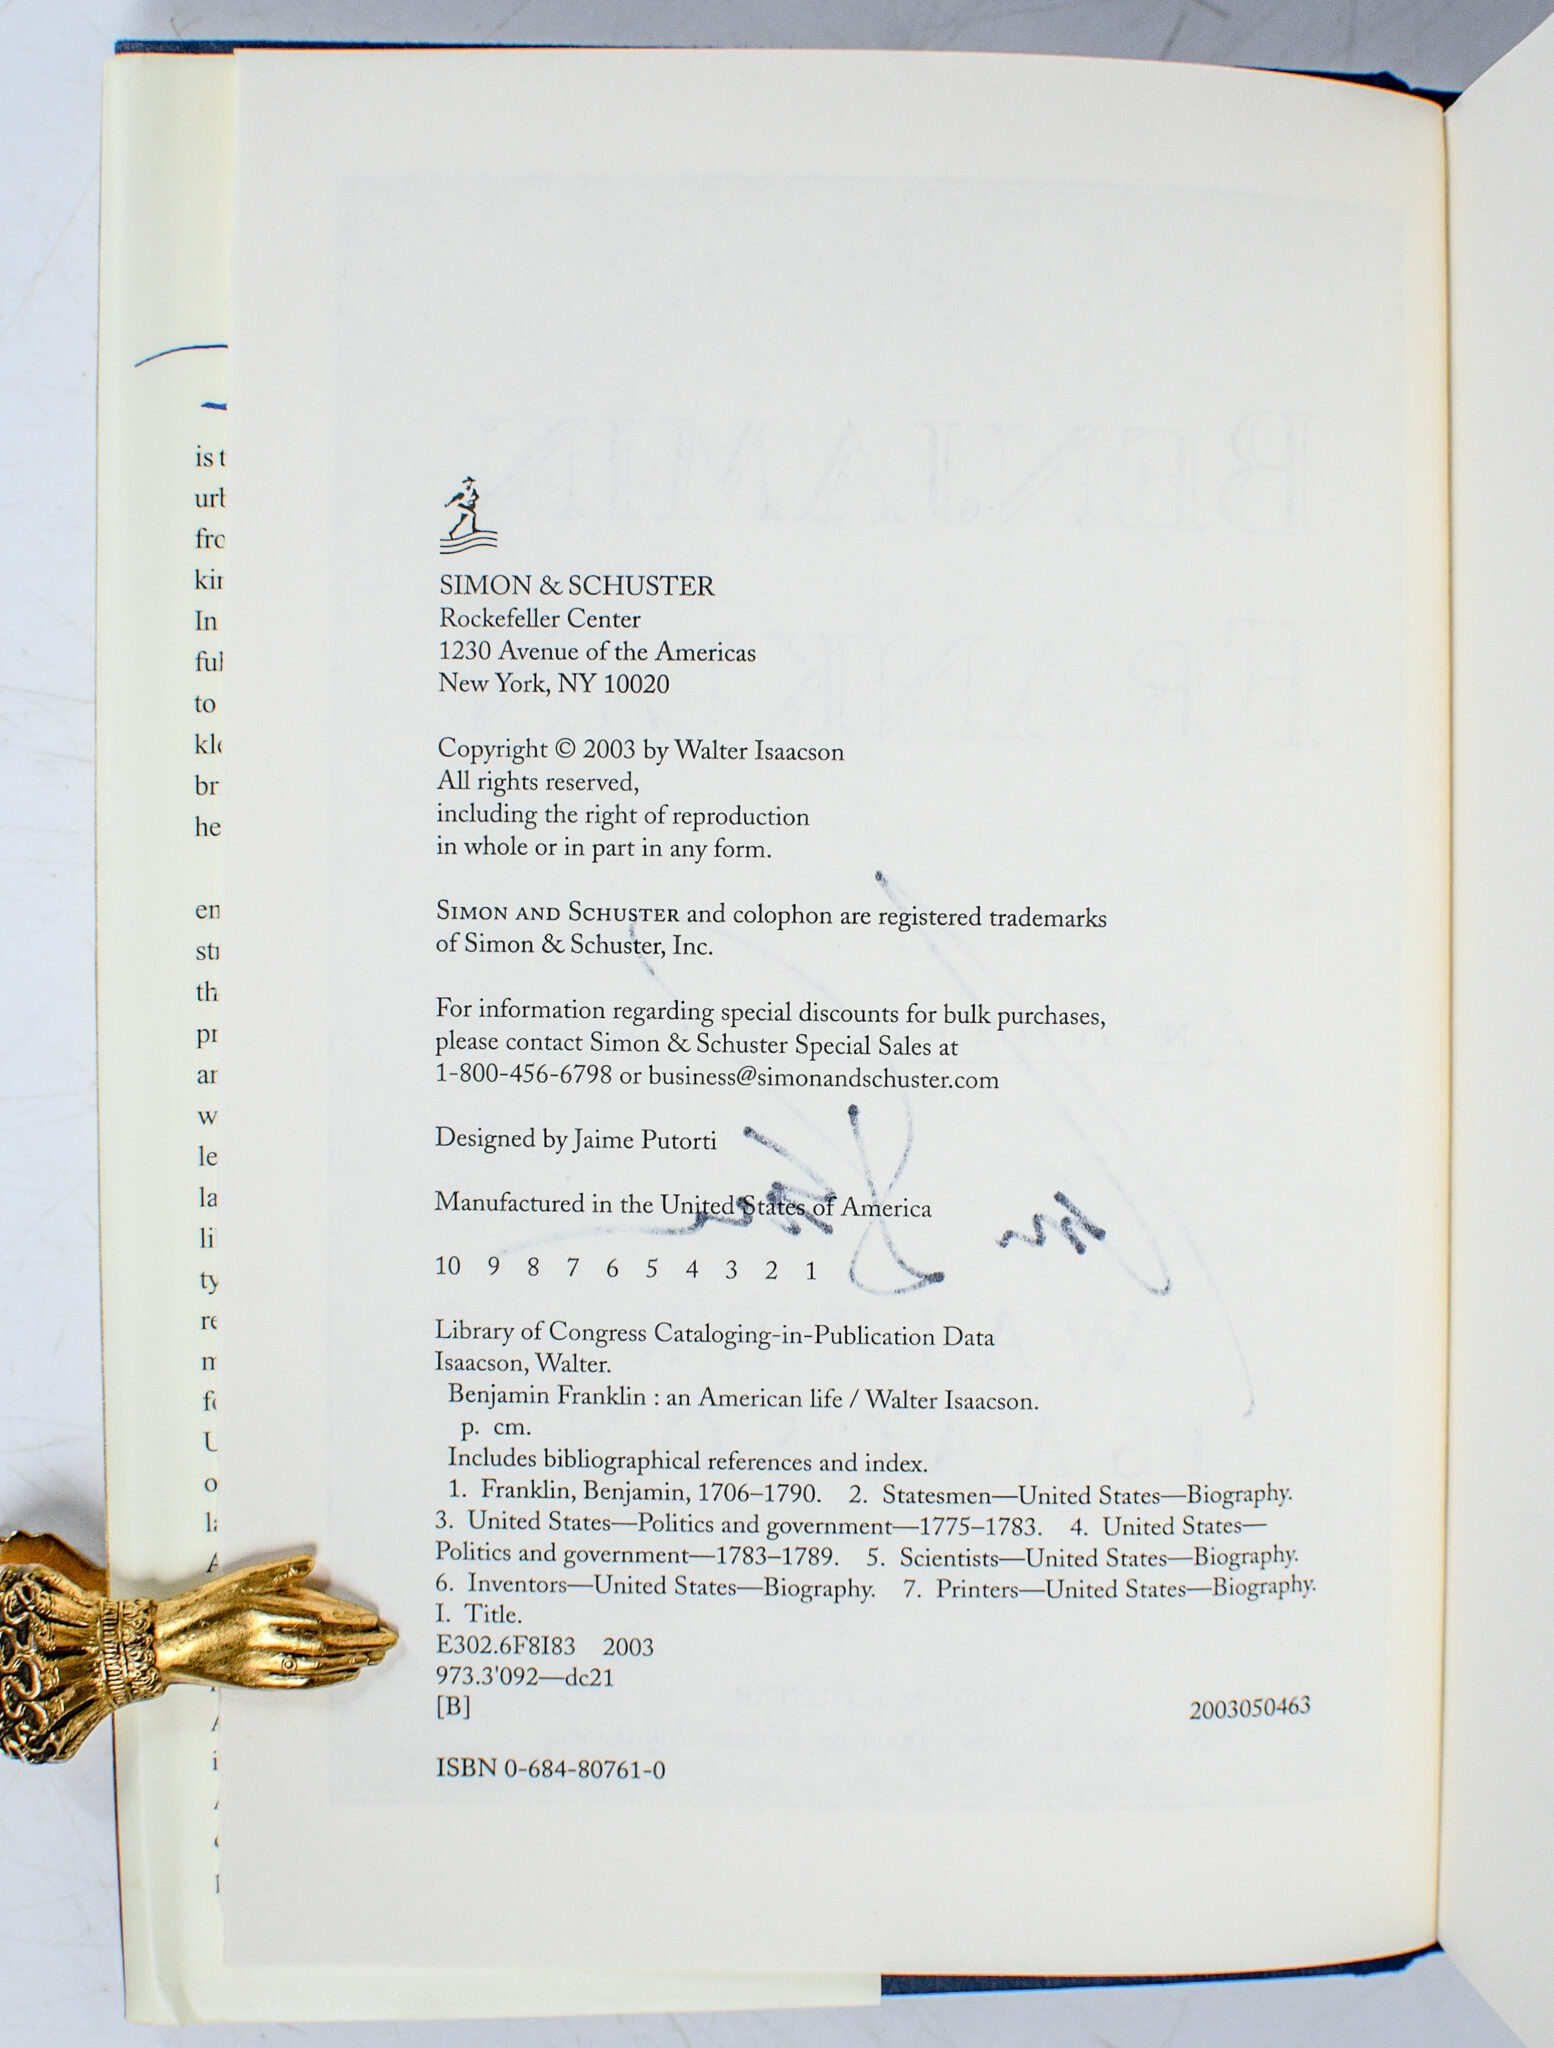 SIMON & SCHUSTER
Rockefeller Center
1230 Avenue of the Americas
New York, NY 10020
Copyright © 2003 by Walter Isaacson
All rights reserved,
including the right of reproduction
in whole or in part in any form.
SIMON AND SCHUSTER and colophon are registered trademarks
of Simon & Schuster, Inc.
For information regarding special discounts for bulk purchases,
please contact Simon & Schuster Special Sales at
1-800-456-6798 or business@simonandschuster.com
Designed by Jaime Putorti
Manufactured in the United States of America
10 9 8 7 6 5 4 3 2 1
Library of Congress Cataloging-in-Publication Data
Isaacson, Walter.
Benjamin Franklin : an American life / Walter Isaacson.
p. cm.
Includes bibliographical references and index.
1. Franklin, Benjamin, 1706–1790. 2. Statesmen—United States—Biography.
3. United States—Politics and government—1775–1783. 4. United States—
Politics and government—1783–1789. 5. Scientists—United States—Biography.
6. Inventors—United States—Biography. 7. Printers—United States—Biography.
I. Title.
E302.6F8I83 2003
973.3'092—dc21
[B] 2003050463
ISBN 0-684-80761-0